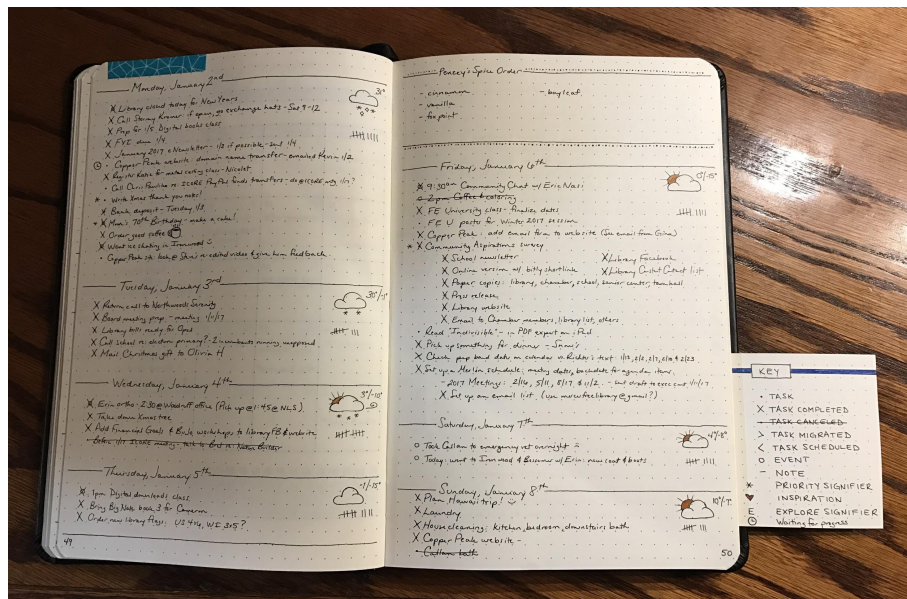 Monday, January 2nd
31°
X Library closed today for New Years
X Call Stormy Kromer: if open, go exchange hats - Sat 9-12
X Prep for 1/5 Digital books class
X FYI due 1/4
X January 2017 eNewsletter - 1/3 if possible, - sent 1/4
• Copper Peak website: domain name transfer - emailed Kevin 1/2
X Register Katie for metal casting class - Nicolet
• Call Chris re: ISCORE PayPal funds transfers - do @ ISCORE mtg 1/17?
* • Write Xmas thank you notes!
X Bank deposit - Tuesday 1/3
* X Mom's 70th Birthday - make a cake!
X Order good coffee
X Went ice skating in Ironwood
• Copper Peak stk: look @ re: edited video & give him feedback
Tuesday, January 3rd
30°/-1°
X Return call to Northwoods Serenity
X Board meeting prep - meeting 1/11/17
X Library bills ready for Opal
X Call School re: election primary? - 2 incumbents running, unopposed
X Mail Christmas gift to Olivia H
Wednesday, January 4th
3°/-10°
X Erin ortho - 2:30 @ Woodruff office (Pick up @ 1:45 @ NLS)
X Take down Xmas tree
X Add Financial Goals & workshops to library FB & website
before 1/17 SCORE meeting - talk to Brd re: Nation Builder
Thursday, January 5th
-1/-15°
X 1pm Digital downloads class
X Bring Big Nate book 3 for Cameron
X Order new library flags: US 4x6, WI 3x5?
49
Penzey's Spice Order
- cinnamon - bay leaf
- vanilla
- fox point
Friday, January 6th
0°/-15°
X 9:30am Community Chat w/ Eric Nasi
o 2pm Coffee & coloring
X FE University class - finalize dates
FE U posts for Winter 2017 session
X Copper Peak: add email form to website (see email from Gina)
* X Community Aspirations survey
X School newsletter X Library Facebook
X Online version w/ bitly shortlink X Library Cnstnt Cntact list
X Paper copies: library, chamber, school, senior center, town hall
X Press release
X Library website
X Email to Chamber members, library list, others
• Read "Indivisible" - in PDF export on iPad
X Pick up something for dinner - Snow's
X Check pep band dates on calendar vs Richter's text 1/13, 2/2, 2/7, 2/14 & 2/23
X Set up a Merlin schedule: meeting dates, base dates for agenda items:
- 2017 Meetings: 2/16, 5/11, 8/17 & 11/2. - sent draft to exec cmt 1/11/17.
X Set up an email list (use mercerfreelibrary@gmail?)
Saturday, January 7th
4°/-8°
o Took Callam to emergency vet overnight
o Today: went to Ironwood & Bessemer w/ Erin: new coat & boots
Sunday, January 8th
10°/-7°
X Plan Hawaii trip!
X Laundry
X House cleaning: kitchen, bedroom, downstairs bath
X Copper Peak website -
• Callam bath
50
KEY
• TASK
X TASK COMPLETED
• TASK CANCELED
> TASK MIGRATED
< TASK SCHEDULED
O EVENT
– NOTE
* PRIORITY SIGNIFIER
♥ INSPIRATION
E EXPLORE SIGNIFIER
Waiting for progress